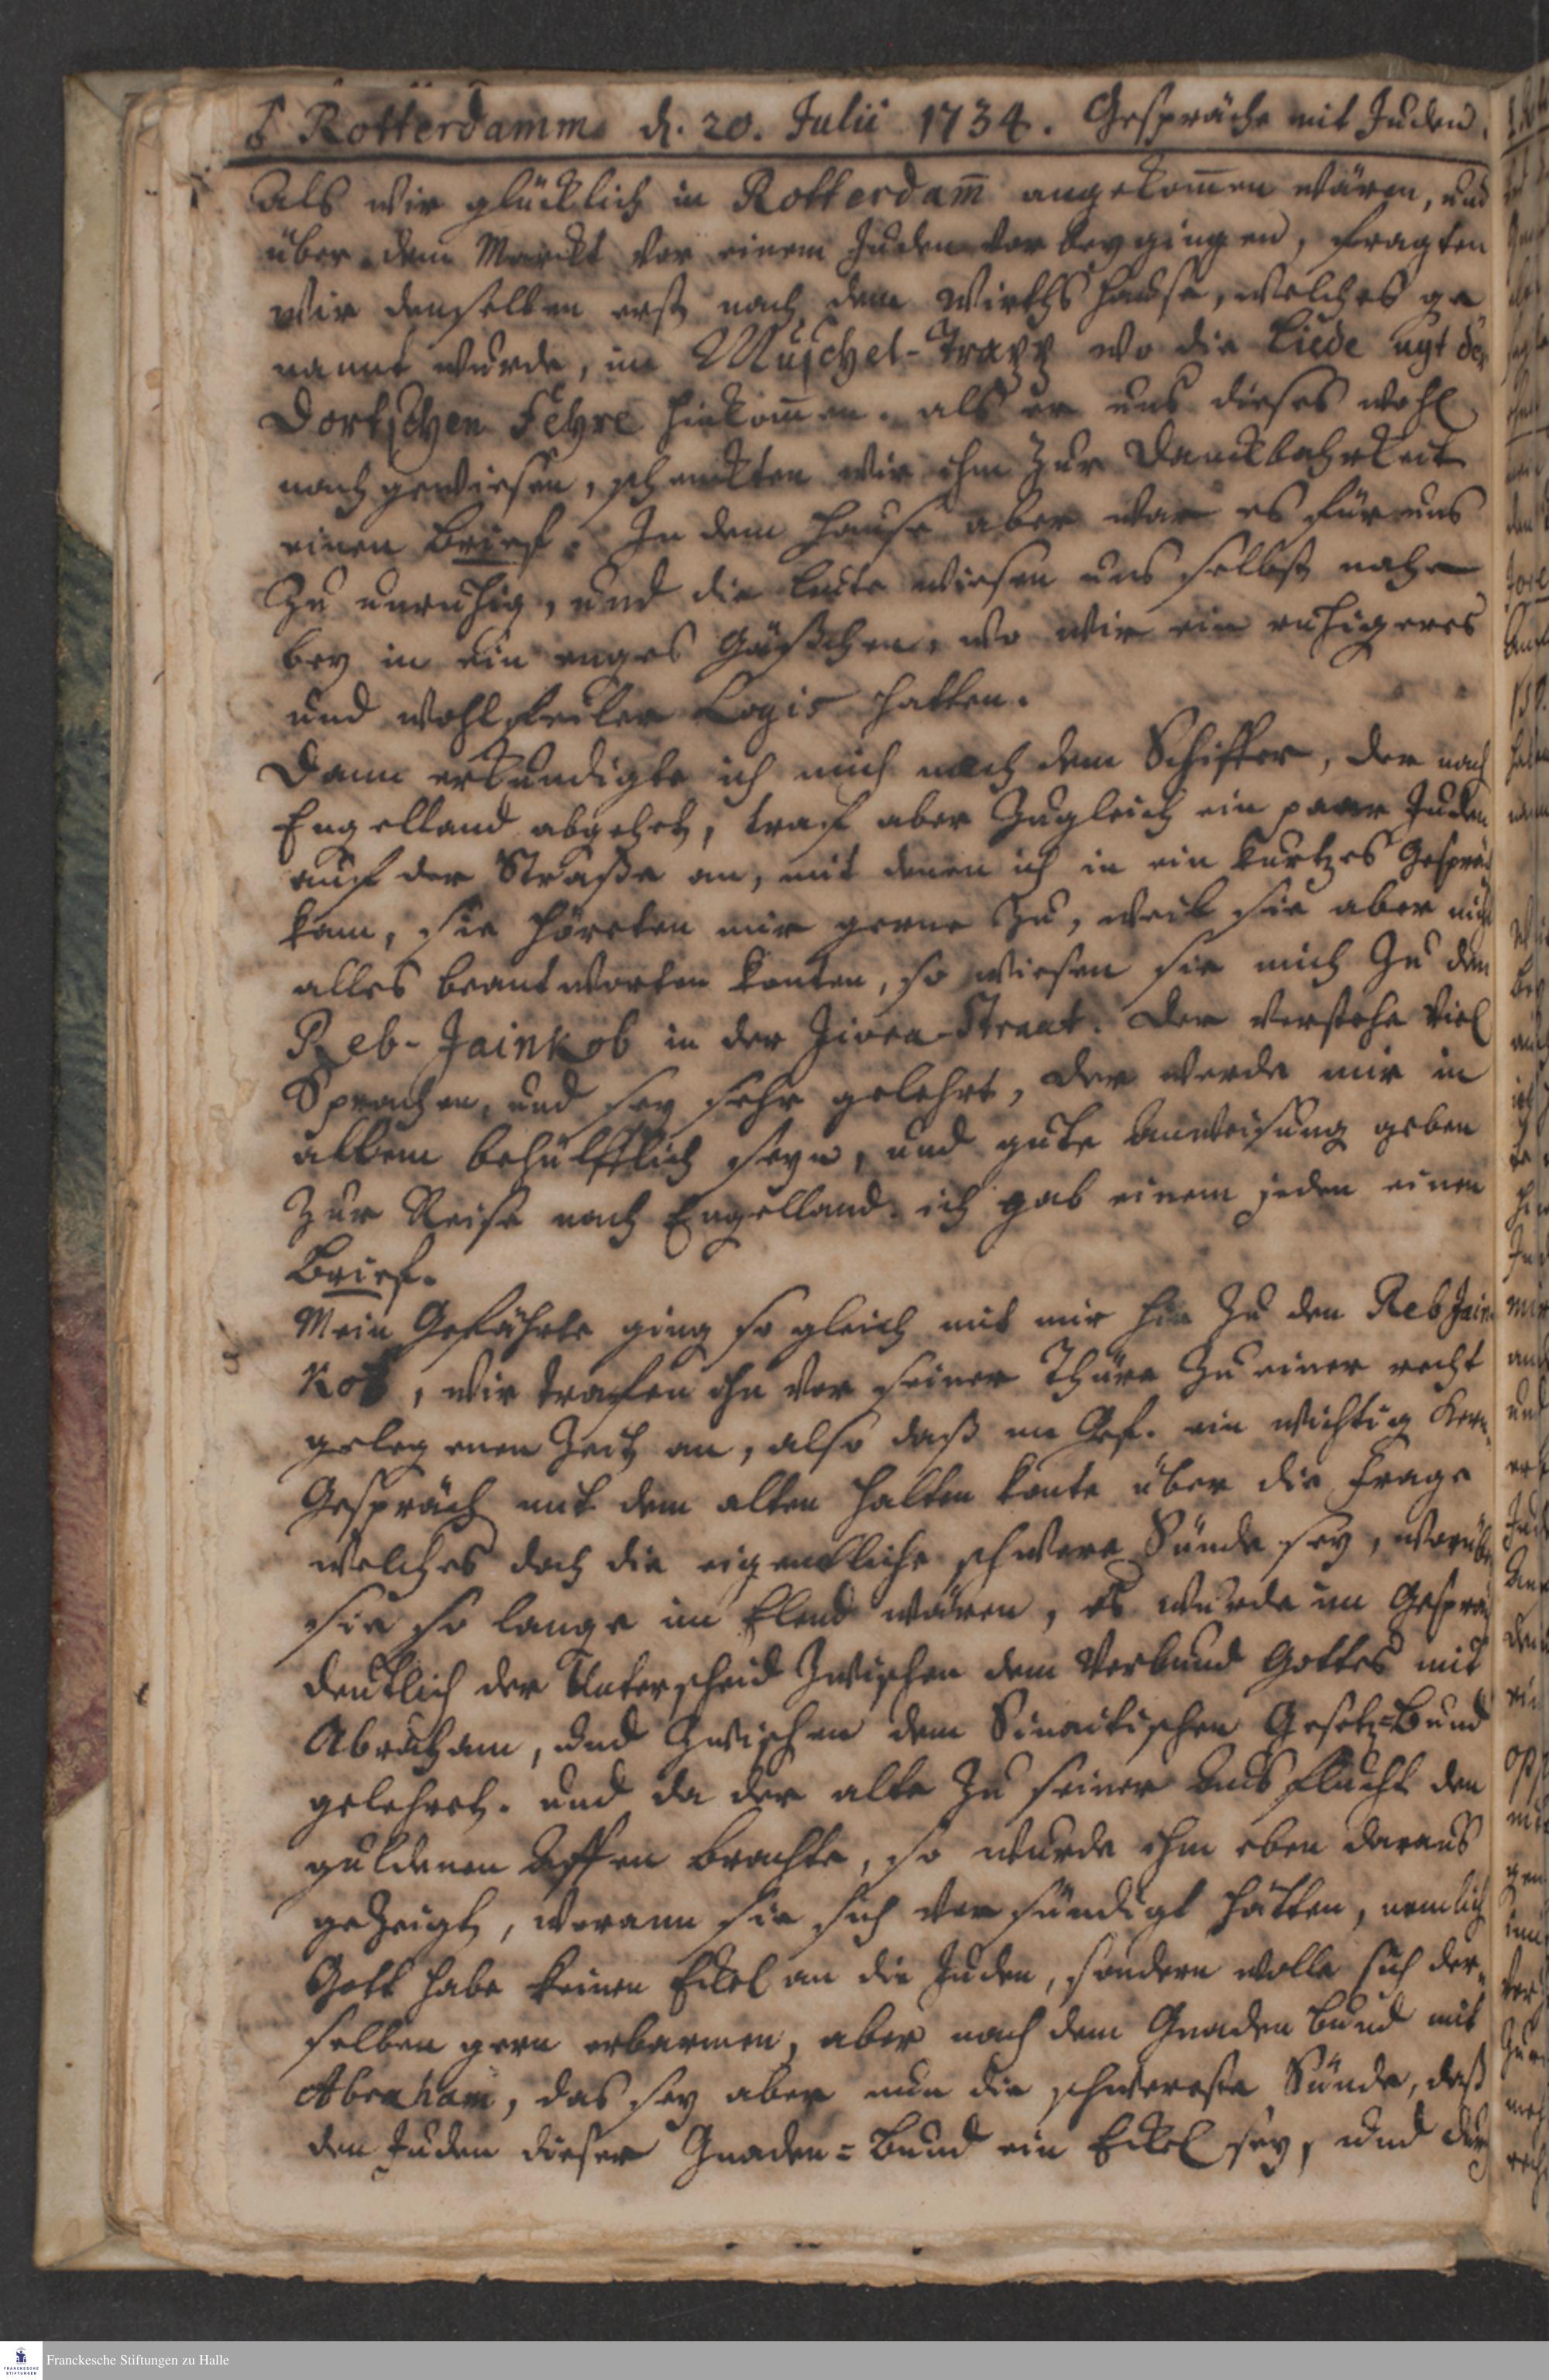 Rotterdamm d. 20. Julii 1734. Gespräche mit Juden.
Als wir glücklich in Rotterdam̄ angekom̄en wären, und
über dem Marckt vor einem Juden vorbeygingen, fragten
wir denselben erst nach dem Wirthshause, welches ge
nannt wurde, im Muschel-Trapp wo die Liede uyt de
Dortschen Fehre hinkom̄en. als er uns dieses wohl
nachgewiesen, schenckten wir ihm zur Danckbahrkeit
einen Brief. In dem Hause aber war es für uns
zu unruhig, und die Leute wiesen uns selbst nahe
bey in ein enges Gäßchen, wo wir ein ruhigeres
und wohlfeiler Logis hatten.
Dann erkundigte ich mich nach dem Schiffer, der nach
Engelland abgehet, traf aber zugleich ein paar Juden
auf der Straße an, mit denen ich in ein kurtzes Gespräch
kam, sie höreten mir gerne zu, weil sie aber nicht
alles beantworten konten, so wiesen sie mich zu dem
Reb-Jainkob in der Straat. Der verstehe viel
Sprachen, und sey sehr gelehrt, der werde mir in
allem behülfflich seyn, und gute Anweisung geben
zur Reise nach Engelland. ich gab einem jeden einen
Brief.
Mein Gefährte ging so gleich mit mir hin zu den Reb Jain
kob, wir trafen ihn vor seiner Thüre zu einer recht
gelegenen Zeit an, also daß m Gef. ein wichtig Kern-
Gespräch mit dem alten halten konte über die Frage
welches doch die eigentliche schwere Sünde sey, worüber
sie so lange im Elend wären, es wurde im Gespräch
deutlich der Unterscheid zwischen dem Verbund Gottes mit
Abraham, und zwischen dem Sinaitischen Gesetz=Bund
gelehret. und da der alte zu seiner Ausflucht den
guldenen Affen brachte, so wurde ihm eben daraus
gezeigt, worann sie sich versündigt hätten, nemlich
Gott habe keinen Eckel an die Juden, sondern wolle sich der-
selben gern erbarmen, aber nach dem Gnaden Bund mit
Abraham, das sey aber nun die schwereste Sünde, daß
den Juden dieser Gnaden=Bund ein Eckel sey, und
Franckesche Stiftungen zu Halle